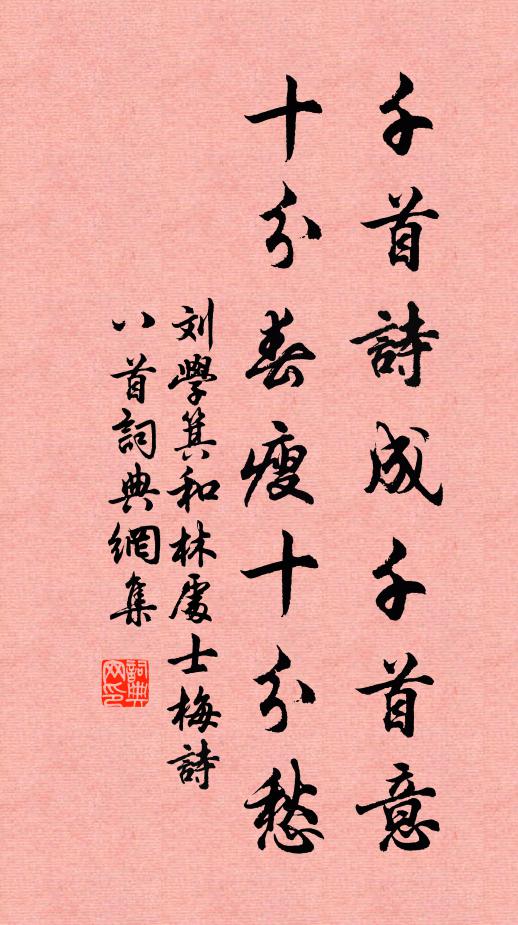 千首詩成千首意
十分春瘦十分愁
刘學箕和林處士梅詩
八首詞典網集
詞典網印